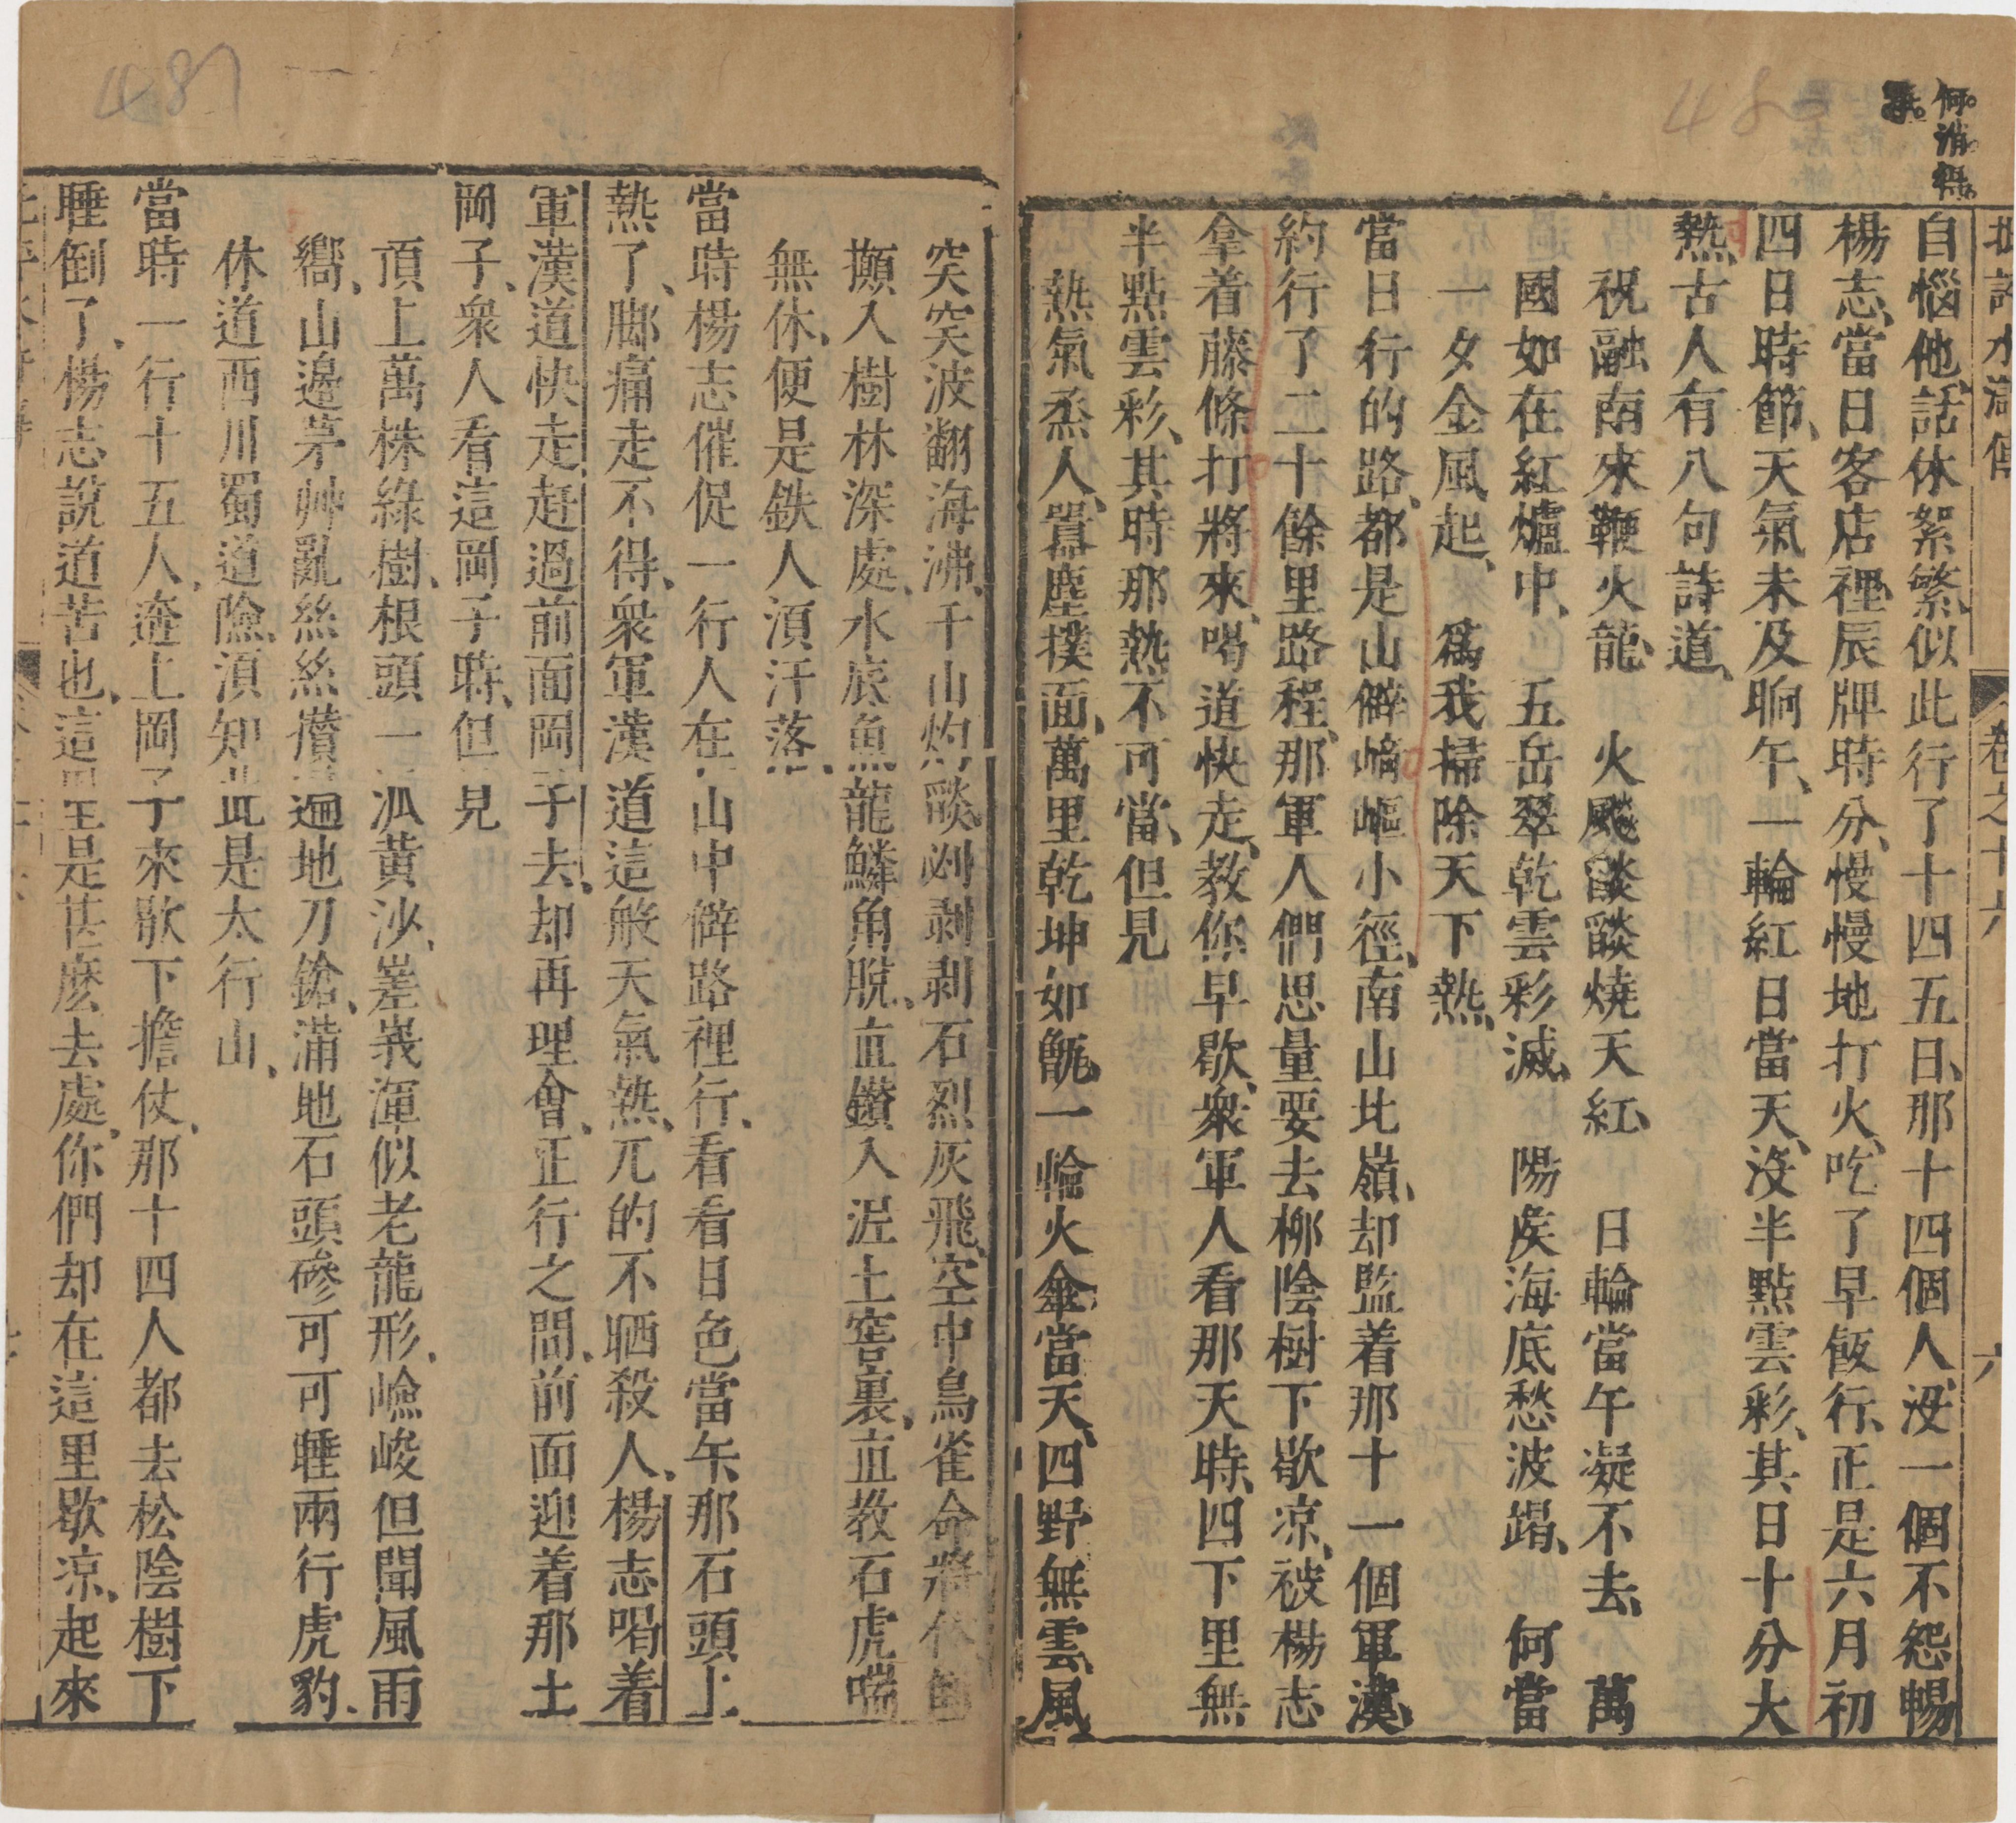 何消怒
自惱他話休絮繁似此行了十四五日那十四個人没一個不怨暢
楊志當日客店裡辰牌時分慢慢地打火吃了早飯行正是六月初
四日時節天氣未及晌午一輪紅日當天沒半點雲彩其日十分大
熱古人有八句詩道
祝融南來鞭火龍 火飈燄燄燒天紅 日輪當午凝不去 萬
國如在紅爐中 五岳翠乾雲彩滅 陽矦海底愁波竭 何當
一夕金風起 爲我掃除天下熱
當日行的路都是山僻崎嶇小徑南山北嶺却監着那十一個軍漢
約行了二十餘里路程那軍人們思量要去柳陰樹下歇凉被楊志
拿着藤條打將來喝道快走教你早歇衆軍人看那天時四下里無
半點雲彩其時那熱不可當但見
熱氣烝人囂塵撲面萬里乾坤如甑一輪火傘當天四野無雲風
突突波翻海沸千山灼燄剥剥剥石烈灰飛空中鳥雀命將休倒
攧入樹林深處水底魚龍鱗角脫直鑽入泥土窖裏直教石虎喘
無休便是鉄人湏汗落
當時楊志催促一行人在山中僻路裡行看看日色當午那石頭上
熱了脚痛走不得衆軍漢道這般天氣熱兀的不晒殺人楊志喝着
軍漢道快走赶過前面岡子去却再理會正行之間前面迎着那土
岡子衆人看這岡子時但見
頂上萬株綠樹根頭一派黄沙嵳峩渾似老龍形嶮峻但聞風雨
嚮山邊茅艸亂絲絲攢遍地刀鎗滿地石頭磣可可睡兩行虎豹
休道西川蜀道險湏知此是太行山
當時一行十五人奔上岡子來歇下擔仗那十四人都去松陰樹下
睡倒了楊志說道苦也這里是甚麽去處你們却在這里歇凉起來
卷之十六
六
487